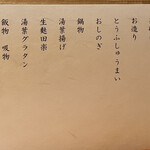 お造り
とうふしゅうまい
おしのぎ
鍋物
湯葉揚げ
生麩田楽
湯葉グラタン
飯物 吸物